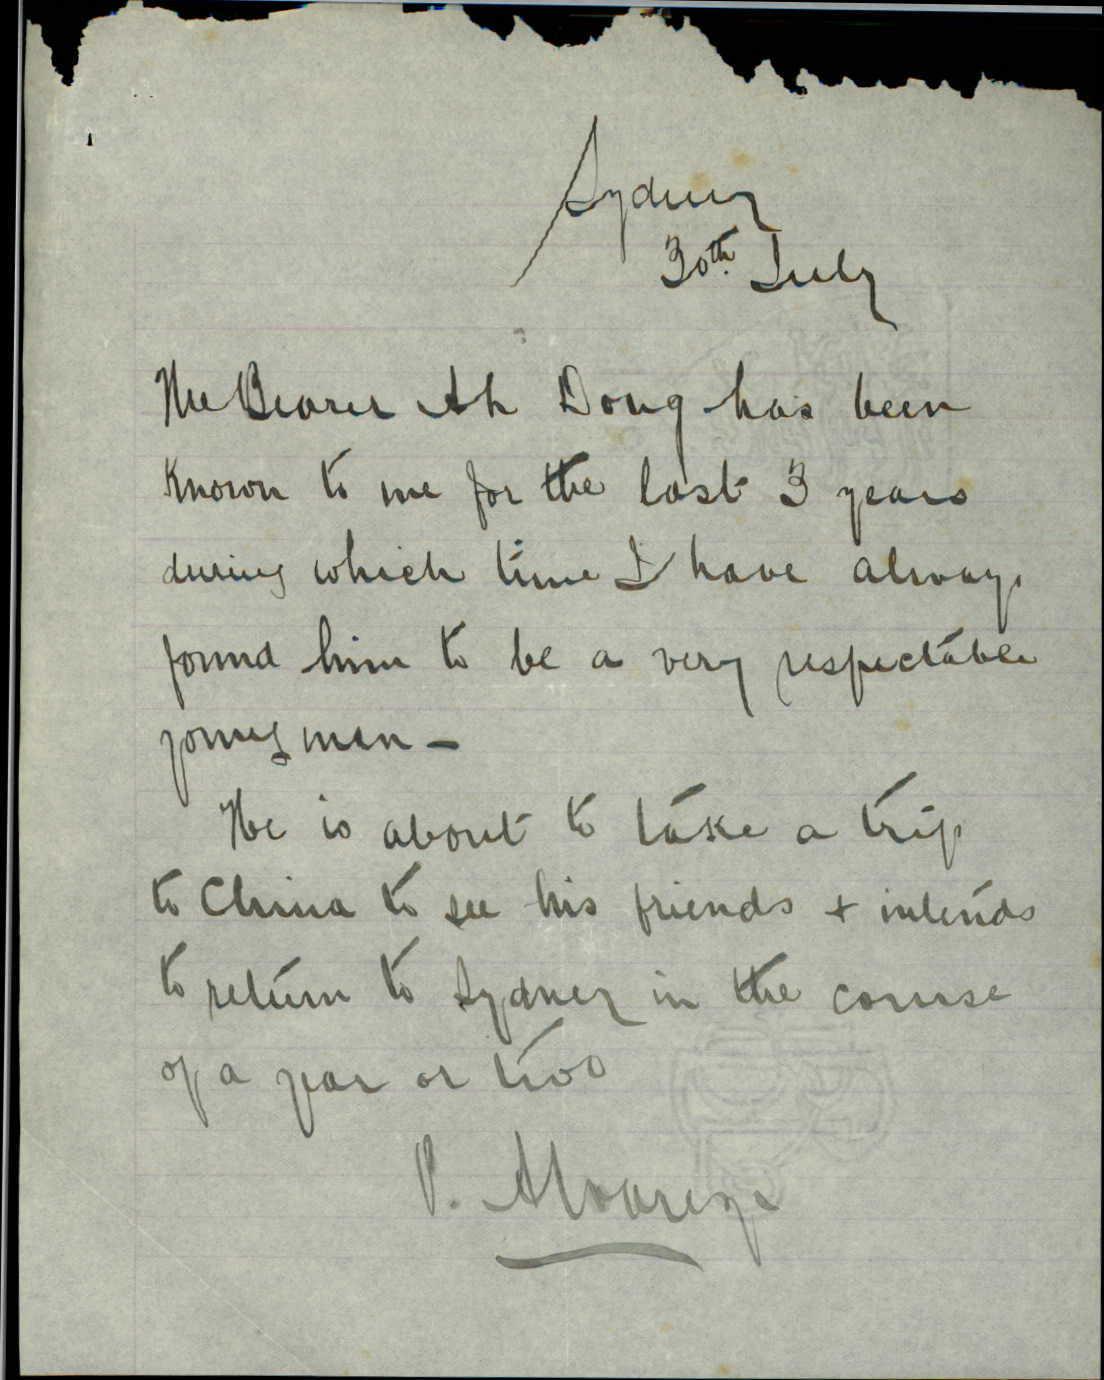 Sydney
30th July
The Bearer Ah Doug has been
Known to me for the last 3 years
during which time I have always
found him to be a very respectable
young man -
He is about to take a trip
to China to see his friends + intends
to return to Sydney in the course
of a year or two
P. Alvarez